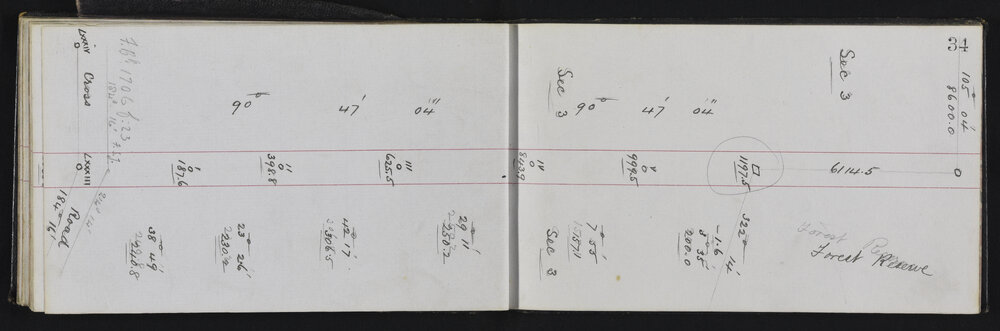 34
105° 04'
8600.0
Sec 3
0
6114.5
1197.5
04"
47'
90°
Sec 3
999.5
843.9
322° 14'
-1.6
8° 35'
200.0
Forest
Forest Reserve
7° 53'
Sec 3
04"
47'
90°
625.5
398.8
187.6
29° 11'
42° 17'
2306.5
23° 26'
2230.2
38° 49'
2248.8
F.Bk 1706 f. 23
184° 16'
LXXIV
0
Cross
LXXXIII
0
Road
184° 16'